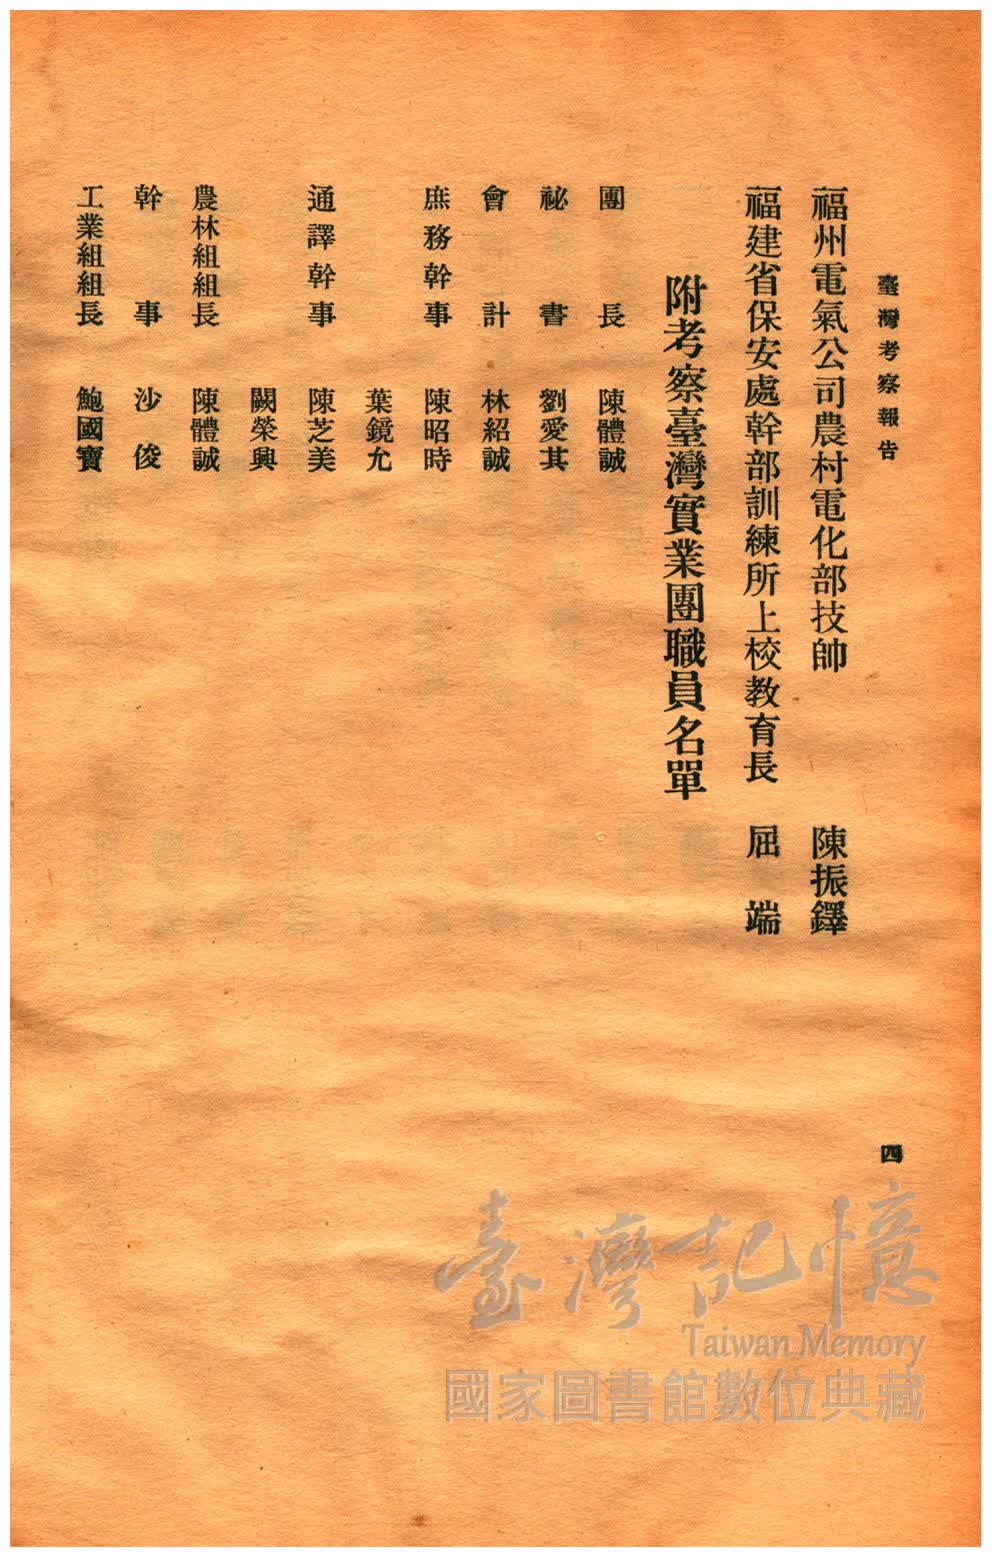 臺灣考察報告
四
福州電氣公司農村電化部技帥 陳振鐸
福建省保安處幹部訓練所上校教育長 屈端
附考察臺灣實業團職員名單
團長 陳體誠
祕書 劉愛其
會計 林紹誠
庶務幹事 陳昭時
葉鏡允
通譯幹事 陳芝美
闕榮興
農林組組長 陳體誠
幹事 沙俊
工業組組長 鮑國寶
臺灣記憶
Taiwan Memory
國家圖書館數位典藏